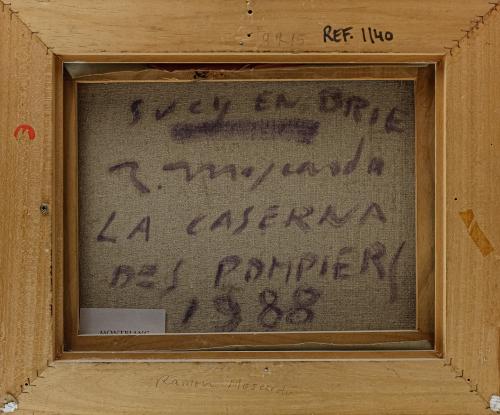 REF. 1/40
SUCY EN BRIE
R. Moscardo
LA CASERNA
DES POMPIERS
1988
MONTBLANC
Ramon Moscardo